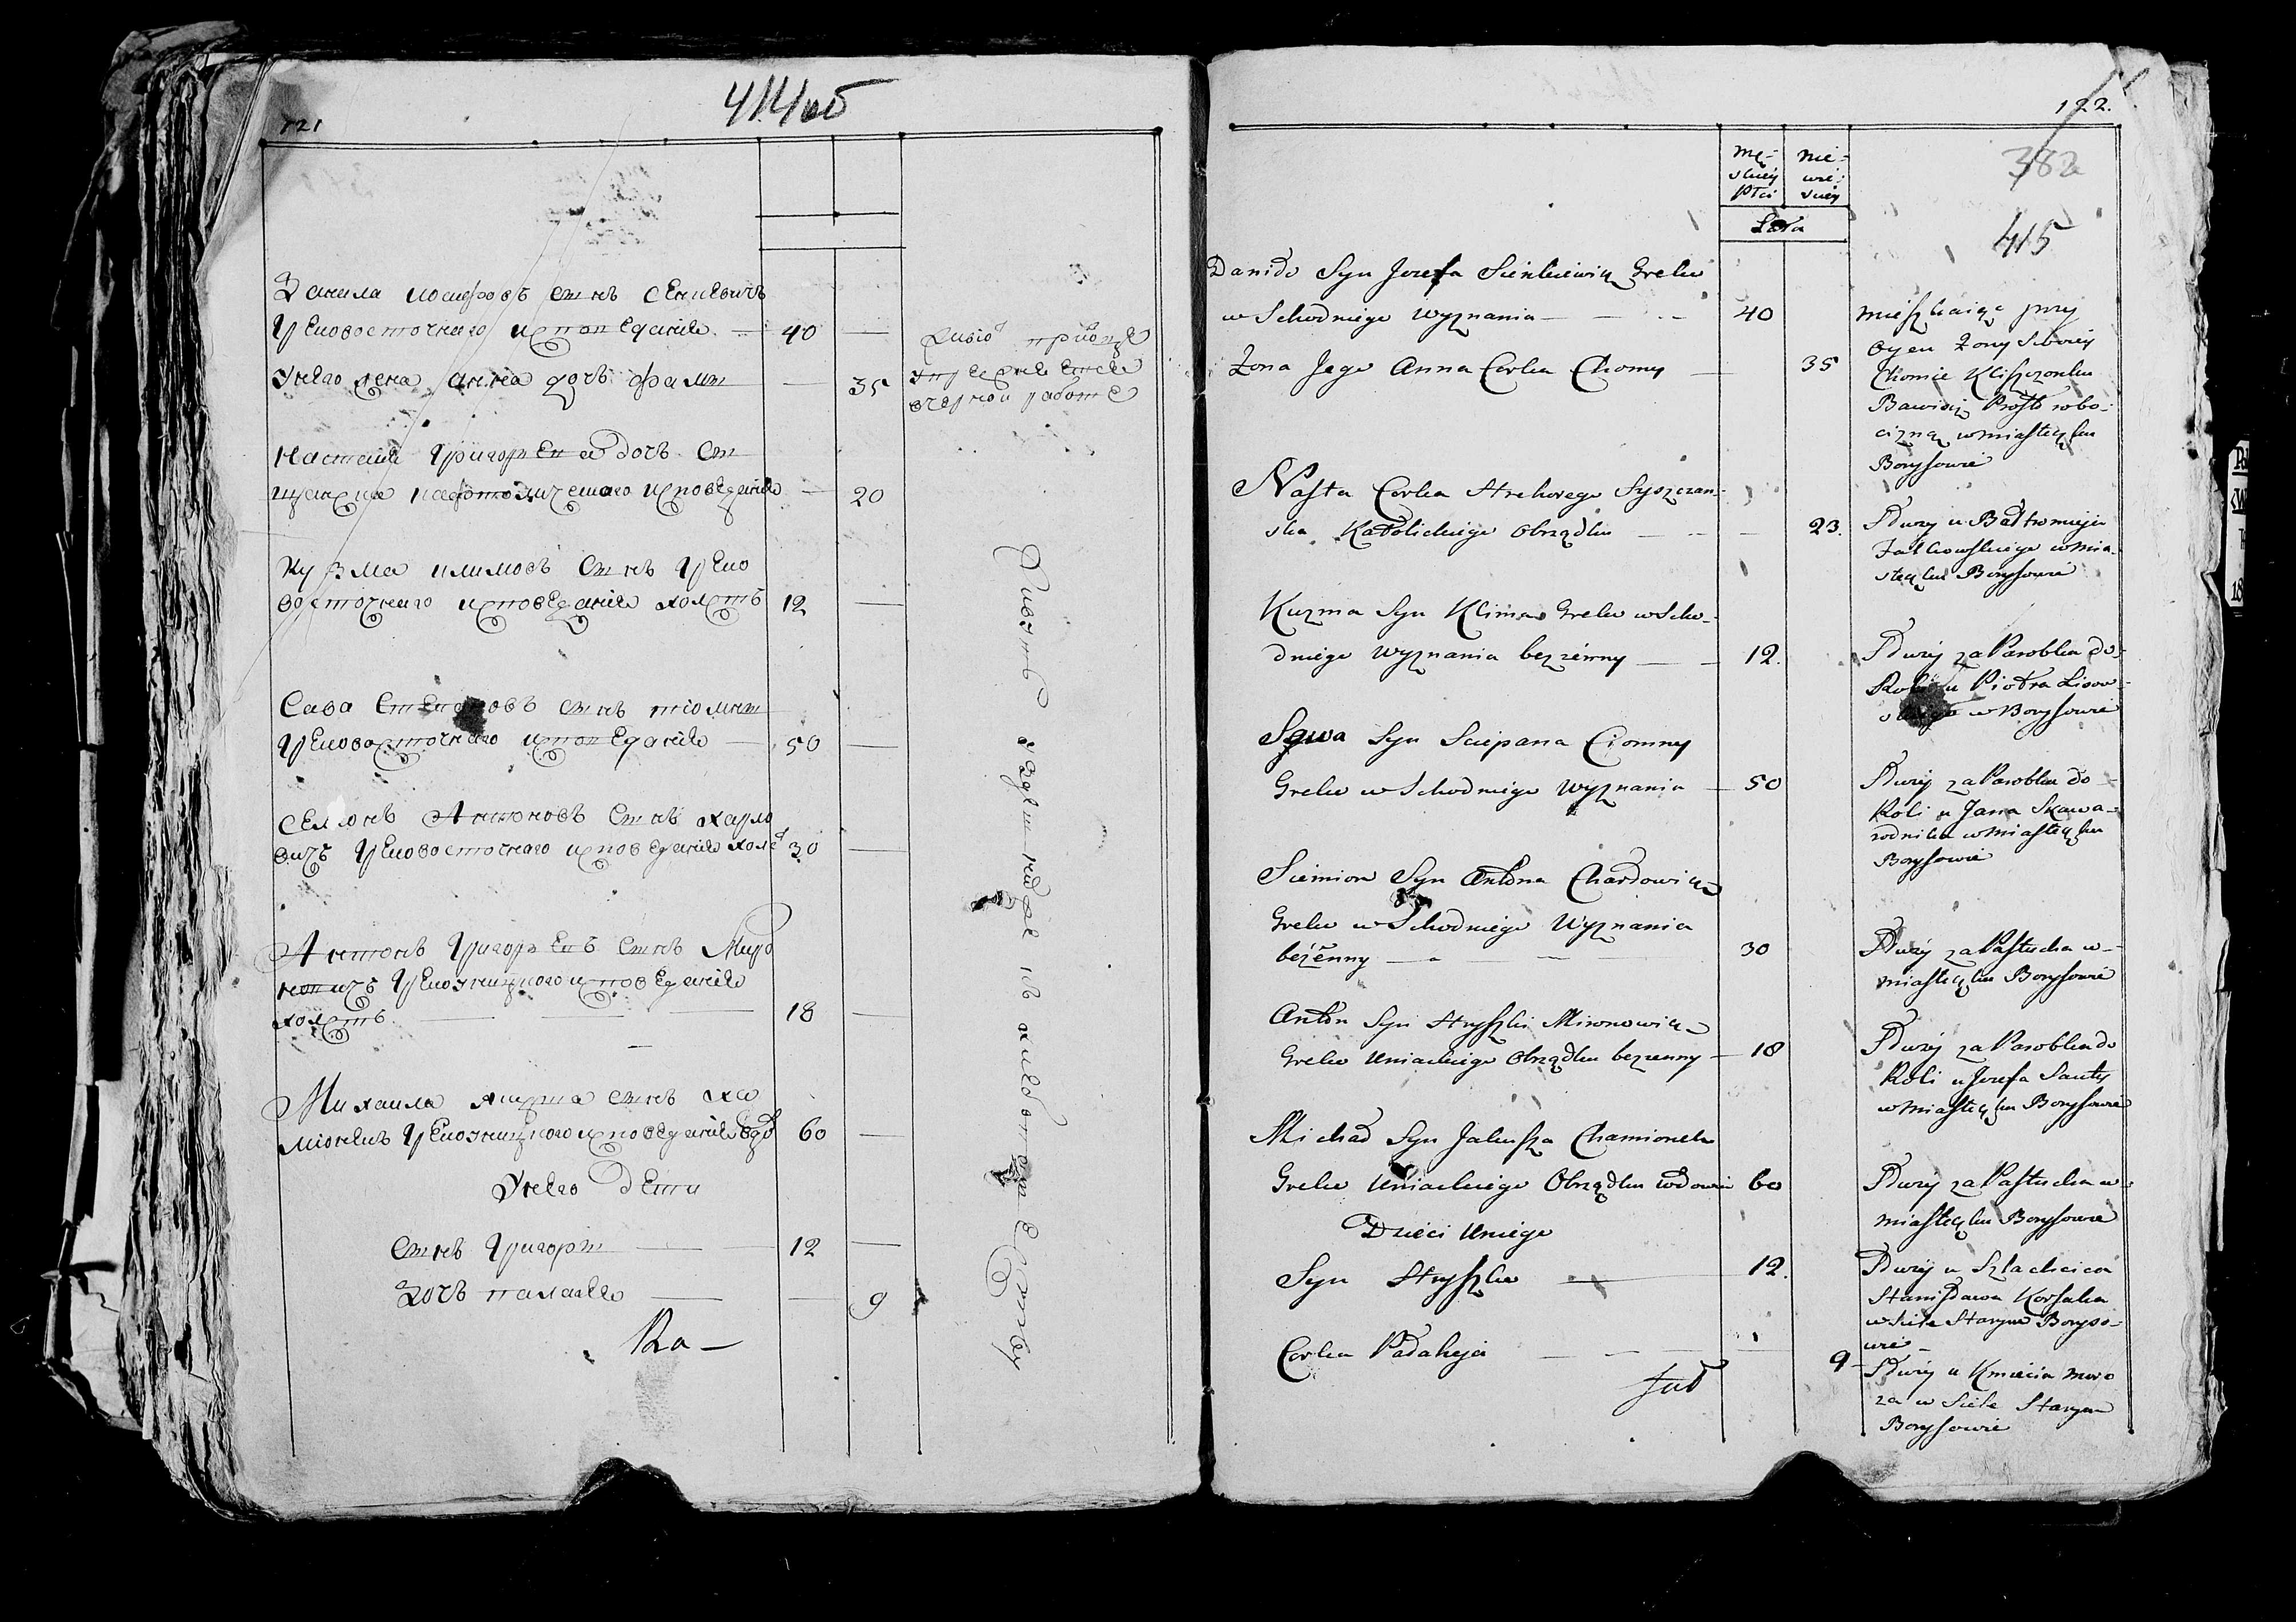 121
414 об
Данила иосифовъ сынъ сенкевичъ
грековосточнаго исповедания 40
Унего жена анна дочь фамы 35
живіо при
черной работе
Настасия григорьева дочь
католическаго исповедания 20
Кузма климовъ сынъ греко
восточнаго исповедания холостъ 12
Сава степановъ сынъ тіомны
грековосточнаго исповедания 50
Семіонъ Антоновъ сынъ харло
вичъ грековосточнаго исповедания холос 30
Антонъ григорьевъ сынъ Миро
новичъ грекоуницкого исповедания
холостъ 18
Михаила якуша сынъ ха
міонекъ грекоуницкого исповедания вдо 60
Унего дети
сынъ григоры 12
Дочь палагея 9
Ка-
122.
382
415
mę-
skiey
Płci
nie-
wie-
skiey
Lata
Daniło Syn Jozefa Sienkiewicz Greko
w Schodniego Wyznania 40
Zona Jego Anna Corka Chomy 35
mieszkaiąc przy
Oycu Zony Swoiey
Chomie Kliszczonku
Bawi się Prosto robo-
cizną w miasteczku
Borysowie
Nasta Corka Hrehorego Syszczan-
ska Katolickiego Obrządku 23.
Służy u Bałtromieja
Fałkowskiego w mia-
steczku Borysowie
Kuzma Syn Klima Greko w Scho-
dniego Wyznania bezżenny 12.
Służy za Parobka do
Roli u Piotra Lisow-
skiego w Borysowie
Sawa Syn Sciepana Ciomny
Greko w Schodniego Wyznania 50
Służy za Parobka do
Roli u Jana Skawa-
rodnika w miasteczku
Borysowie
Siemion Syn Antona Charłowicz
Greko w Schodniego Wyznania
beżenny 30
Służy za Pastucha w
miasteczku Borysowie
Anton Syn Hryszki Mironowicz
Greko Uniackiego Obrządku bezzenny 18
Służy za Parobka do
Roli u Jozefa Sauty
w Miasteczku Borysowie
Michał Syn Jakusza Chamionek
Greko Uniackiego Obrządku wdowiec 60
Służy za Pastucha w
miasteczku Borysowie
Dzieci Uniego
Syn Hryszko 12.
Służy u Szlachcica
Stanisława Korsaka
w Siele Starym Boryso-
wie
Corka Pałaheja 9
Służy u Kmiecia Moro
za w Siele Starym
Borysowie